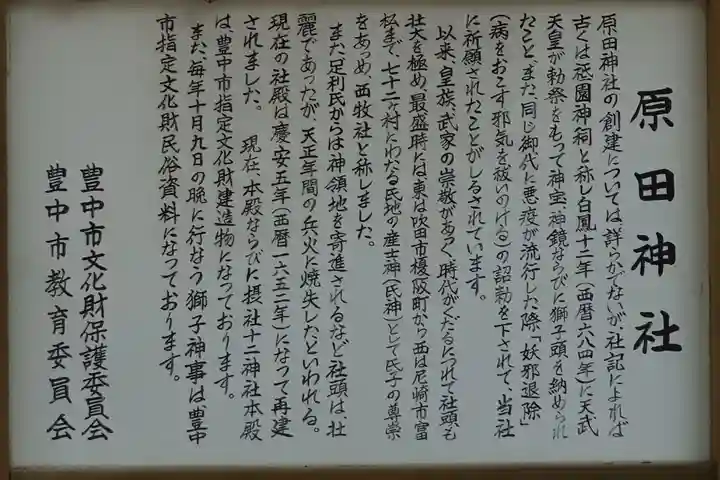 原田神社
原田神社の創建については詳らかでないが、社記によれば
古くは祇園神祠と称し白鳳十二年(西暦六八四年)に天武
天皇が勅祭をもって神宝、神鏡ならびに獅子頭を納められ
たこと、また、同じ御代に悪疫が流行した際「妖邪退除」
(病をおこす邪気を祓いのける)の詔勅を下されて、当社
に祈願されたことがしるされています。
以来、皇族、武家の崇敬があつく、時代がくだるにつれて社頭も
壮大を極め、最盛時には、東は吹田市榎阪町から西は尼崎市富
松まで、七十二ヶ村にわたる氏地の産土神(氏神)として氏子の尊崇
をあつめ、西牧社と称しました。
また足利氏からは神領地を寄進されるなど社頭は、壮
麗であったが、天正年間の兵火に焼失したといわれる。
現在の社殿は慶安五年(西暦一六五二年)になって再建
されました。 現在、本殿ならびに摂社十二神社本殿
は、豊中市指定文化財建造物になっております。
また、毎年十月九日の晩に行なう獅子神事は豊中
市指定文化財民俗資料になっております。
豊中市文化財保護委員会
豊中市教育委員会